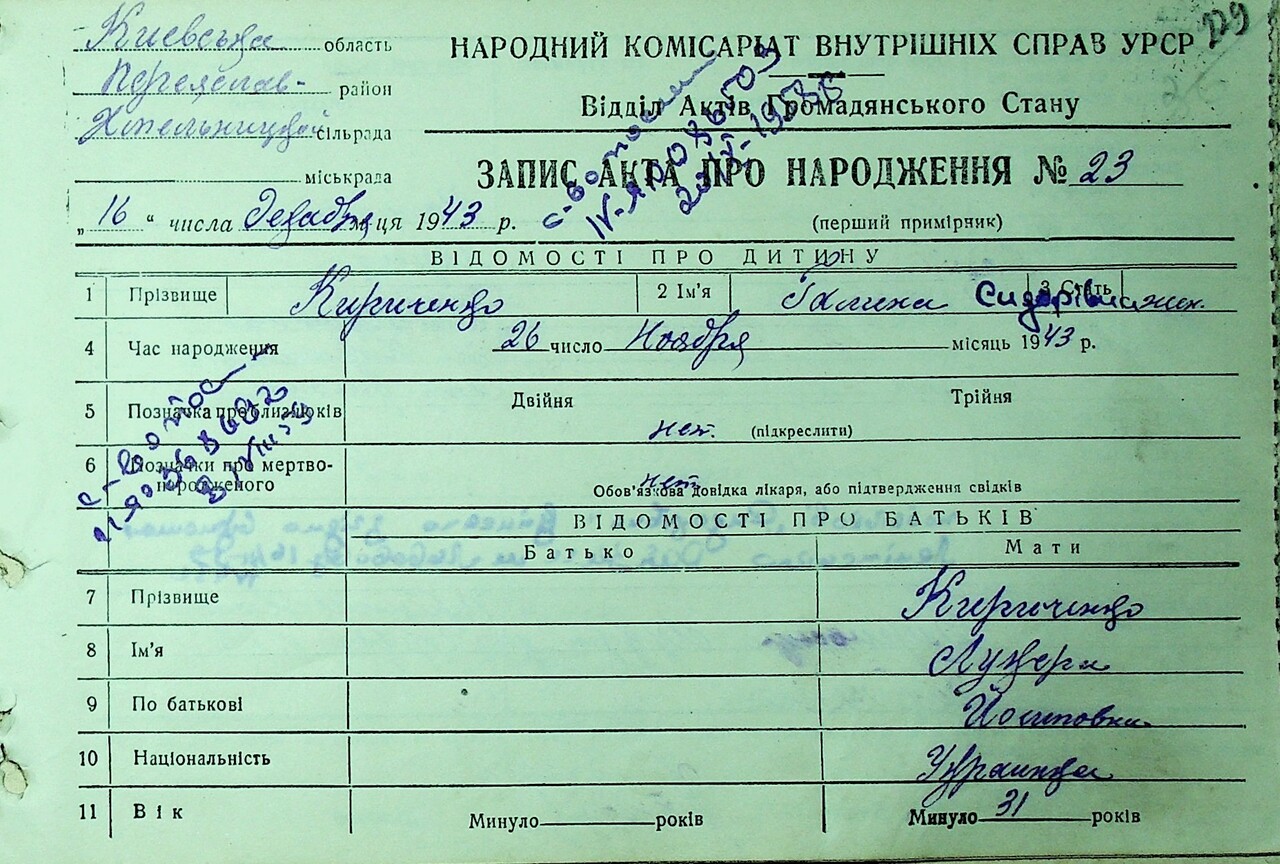 Киевська область
229
Переяслав- район
Хмельницкой сільрада
міськрада
НАРОДНИЙ КОМІСАРІАТ ВНУТРІШНІХ СПРАВ УРСР
Відділ Актів Громадянського Стану
ЗАПИС АКТА ПРО НАРОДЖЕННЯ № 23
(перший примірник)
„ 16 “ числа Декабря місяця 1943 р.
ВІДОМОСТІ ПРО ДИТИНУ
1 Прізвище Кириченко 2 Ім'я Галина Сидорівна 3 Стать жен.
4 Час народження 26 число Ноября місяць 1943 р.
5 Позначка про близнюків Двійня Трійня
нет. (підкреслити)
6 Позначки про мертвонародженого
нет
Обов'язкова довідка лікаря, або підтвердження свідків
ВІДОМОСТІ ПРО БАТЬКІВ
Батько Мати
7 Прізвище Кириченко
8 Ім'я Лукеря
9 По батькові Йосиповна
10 Національність Украинка
11 Вік Минуло роківМинуло 31 років